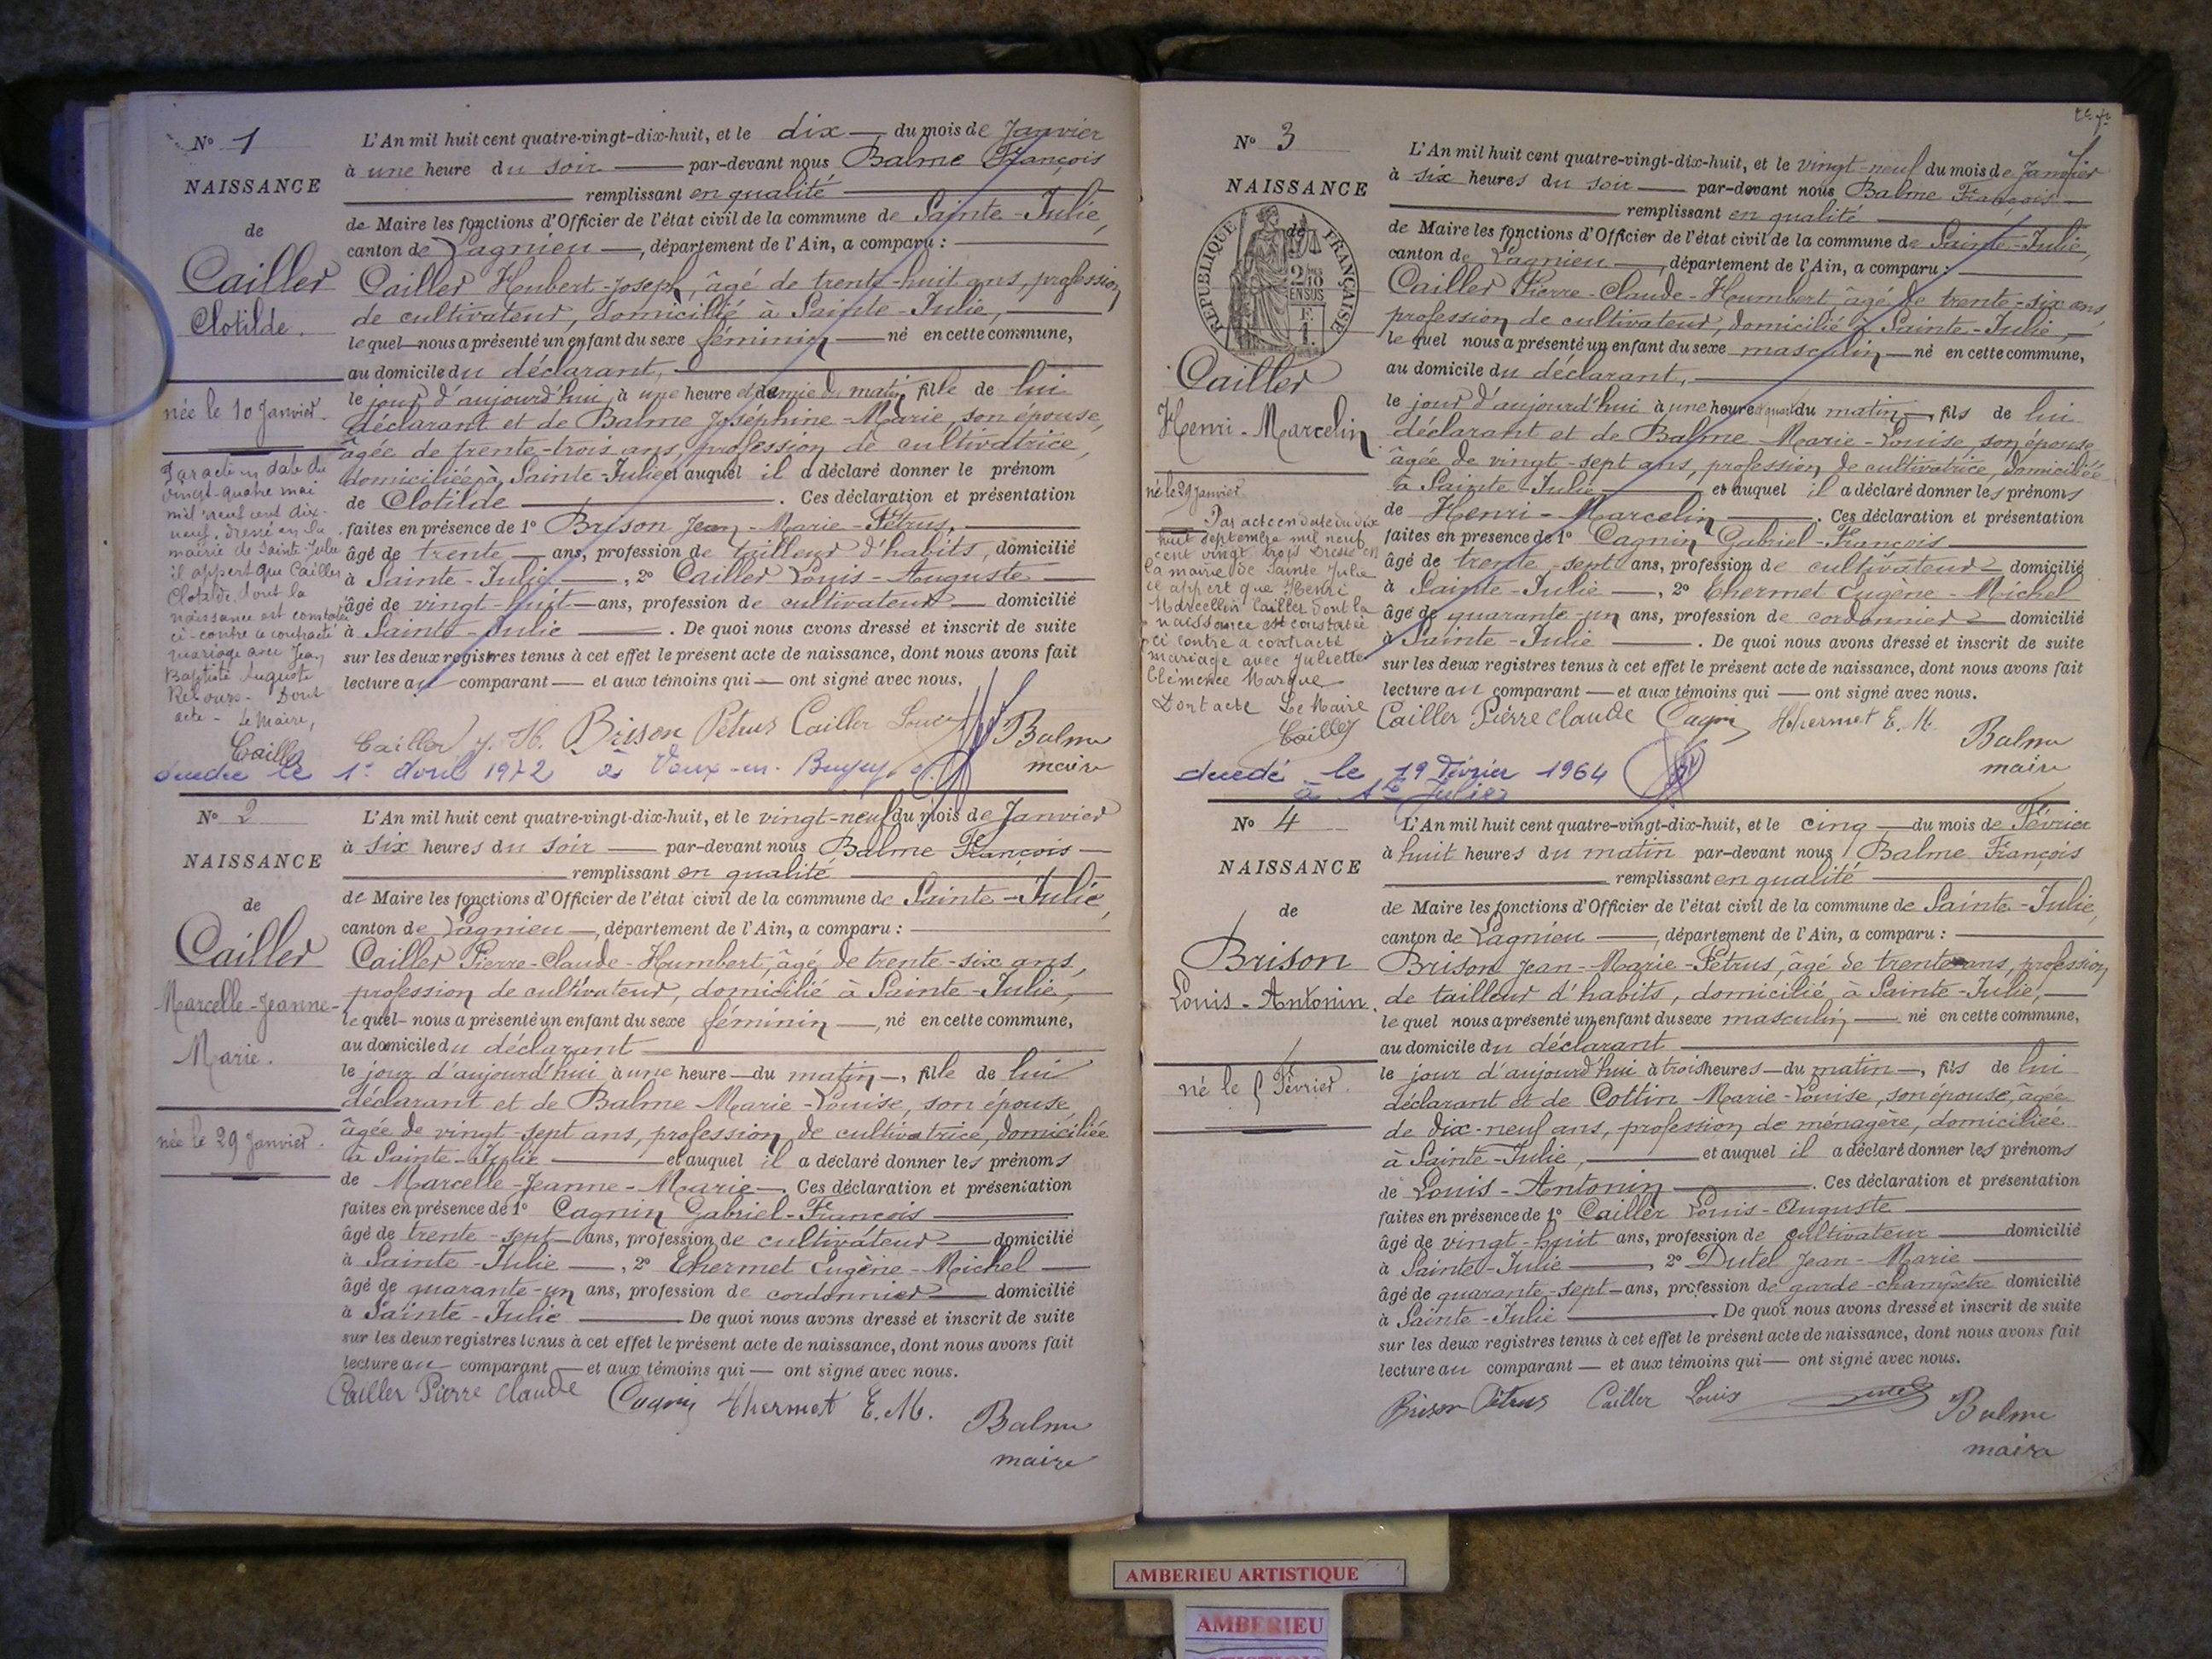 N° 1
NAISSANCE
de
Cailler
Clotilde.
née le 10 Janvier.
Par acte en date du
vingt-quatre mai
mil neuf cent dix-
neuf, dressé en la
mairie de Sainte-Julie
il appert que Cailler
Clotilde, dont la
naissance est constatée
ci-contre a contracté
mariage avec Jean
Baptiste Auguste
Dont
acte - Le Maire,
Cailler
L'An mil huit cent quatre-vingt-dix-huit, et le dix du mois de Janvier
à une heure du soir par-devant nous Balme François
remplissant en qualité
de Maire les fonctions d'Officier de l'état civil de la commune de Sainte-Julie,
canton de Lagnieu, département de l'Ain, a comparu :
Cailler Hubert-Joseph, âgé de trente-huit ans, profession
de cultivateur, domicilié à Sainte-Julie,
lequel nous a présenté un enfant du sexe féminin né en cette commune,
au domicile du déclarant,
le jour d'aujourd'hui, à une heure et demie du matin, fille de lui
déclarant et de Balme Joséphine-Marie, son épouse,
âgée de trente-trois ans, profession de cultivatrice,
domiciliée à Sainte-Julie et auquel il a déclaré donner le prénom
de Clotilde. Ces déclaration et présentation
faites en présence de 1° Brison Jean-Marie-Pétrus,
âgé de trente ans, profession de tailleur d'habits, domicilié
à Sainte-Julie, 2° Cailler Louis-Auguste
âgé de vingt-huit ans, profession de cultivateur domicilié
à Sainte-Julie. De quoi nous avons dressé et inscrit de suite
sur les deux registres tenus à cet effet le présent acte de naissance, dont nous avons fait
lecture au comparant et aux témoins qui ont signé avec nous.
Cailler J. H. Brison Pétrus Cailler Louis Balme
maire
décédée le 1er Avril 1972 à Vaux-en-Bugey
N° 2
NAISSANCE
de
Cailler
Marcelle-Jeanne-
Marie.
née le 29 Janvier.
L'An mil huit cent quatre-vingt-dix-huit, et le vingt-neuf du mois de Janvier
à six heures du soir par-devant nous Balme François
remplissant en qualité
de Maire les fonctions d'Officier de l'état civil de la commune de Sainte-Julie,
canton de Lagnieu, département de l'Ain, a comparu :
Cailler Pierre-Claude-Humbert, âgé de trente-six ans,
profession de cultivateur, domicilié à Sainte-Julie,
lequel nous a présenté un enfant du sexe féminin, né en cette commune,
au domicile du déclarant
le jour d'aujourd'hui à une heure du matin, fille de lui
déclarant et de Balme Marie-Louise, son épouse
âgée de vingt-sept ans, profession de cultivatrice, domiciliée
à Sainte-Julie et auquel il a déclaré donner les prénoms
de Marcelle-Jeanne-Marie. Ces déclaration et présentation
faites en présence de 1° Cagnin Gabriel-François
âgé de trente-sept ans, profession de cultivateur domicilié
à Sainte-Julie, 2° Thermet Eugène-Michel
âgé de quarante-un ans, profession de cordonnier domicilié
à Sainte-Julie De quoi nous avons dressé et inscrit de suite
sur les deux registres tenus à cet effet le présent acte de naissance, dont nous avons fait
lecture au comparant et aux témoins qui ont signé avec nous.
Cailler Pierre Claude Cagnin Thermet E. M. Balme
maire
N° 3
NAISSANCE
de
RÉPUBLIQUE FRANÇAISE
2/10
EN SUS
F.
1.
Cailler
Henri-Marcelin
né le 29 Janvier
Par acte en date du dix
huit septembre mil neuf
cent vingt trois dressé en
la mairie de Sainte Julie
il appert que Henri
Marcellin Cailler dont la
naissance est constatée
ci contre a contracté
mariage avec Juliette
Clémence Marque
Dont acte Le Maire
Cailler
L'An mil huit cent quatre-vingt-dix-huit, et le vingt-neuf du mois de Janvier
à six heures du soir par-devant nous Balme François
remplissant en qualité
de Maire les fonctions d'Officier de l'état civil de la commune de Sainte-Julie,
canton de Lagnieu, département de l'Ain, a comparu :
Cailler Pierre-Claude-Humbert, âgé de trente-six ans,
profession de cultivateur, domicilié à Sainte-Julie,
lequel nous a présenté un enfant du sexe masculin né en cette commune,
au domicile du déclarant,
le jour d'aujourd'hui à une heure et quart du matin, fils de lui
déclarant et de Balme Marie-Louise, son épouse,
âgée de vingt-sept ans, profession de cultivatrice, domiciliée
à Sainte-Julie et auquel il a déclaré donner les prénoms
de Henri-Marcelin. Ces déclaration et présentation
faites en présence de 1° Cagnin Gabriel-François
âgé de trente-sept ans, profession de cultivateur domicilié
à Sainte-Julie, 2° Thermet Eugène-Michel
âgé de quarante-un ans, profession de cordonnier domicilié
à Sainte-Julie. De quoi nous avons dressé et inscrit de suite
sur les deux registres tenus à cet effet le présent acte de naissance, dont nous avons fait
lecture au comparant et aux témoins qui ont signé avec nous.
Cailler Pierre Claude Cagnin Thermet E. M. Balme
maire
décédé le 19 Février 1964
à Ste Julie
N° 4
NAISSANCE
de
Brison
Louis-Antonin.
né le 5 Février.
L'An mil huit cent quatre-vingt-dix-huit, et le cinq du mois de Février
à huit heures du matin par-devant nous Balme François
remplissant en qualité
de Maire les fonctions d'Officier de l'état civil de la commune de Sainte-Julie,
canton de Lagnieu, département de l'Ain, a comparu :
Brison Jean-Marie-Pétrus, âgé de trente ans, profession
de tailleur d'habits, domicilié à Sainte-Julie,
lequel nous a présenté un enfant du sexe masculin né en cette commune,
au domicile du déclarant
le jour d'aujourd'hui à trois heures du matin, fils de lui
déclarant et de Cottin Marie-Louise, son épouse, âgée
de dix-neuf ans, profession de ménagère, domiciliée
à Sainte-Julie, et auquel il a déclaré donner les prénoms
de Louis-Antonin. Ces déclaration et présentation
faites en présence de 1° Cailler Louis-Auguste
âgé de vingt-huit ans, profession de cultivateur domicilié
à Sainte-Julie, 2° Dutel Jean-Marie
âgé de quarante-sept ans, profession de garde-champêtre domicilié
à Sainte-Julie. De quoi nous avons dressé et inscrit de suite
sur les deux registres tenus à cet effet le présent acte de naissance, dont nous avons fait
lecture au comparant et aux témoins qui ont signé avec nous.
Brison Pétrus Cailler Louis Dutel Balme
maire
AMBERIEU ARTISTIQUE
AMBERIEU